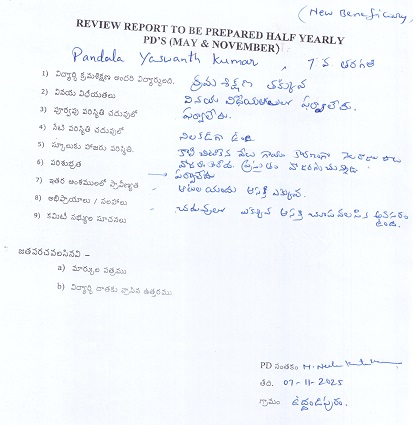 (New Beneficiary)
REVIEW REPORT TO BE PREPARED HALF YEARLY
PD'S (MAY & NOVEMBER)
Pandala Yaswanth Kumar, 7వ తరగతి
1) విద్యార్థి క్రమశిక్షణ అందరి విద్యార్థులది. క్రమ శిక్షణ తక్కువ
2) వినయ విధేయతలు వినయ విధేయతలు పర్వాలేదు.
3) పూర్వపు పరిస్థితి చదువులో పర్వాలేదు.
4) నేటి పరిస్థితి చదువులో నిలకడగా ఉంది
5) స్కూలుకు హాజరు పరిస్థితి. కాలి చిటికెన వేలు గాయం కారణంగా
ప్రస్తుతం హాజరగుచున్నాడు.
6) పరిశుభ్రత – పర్వాలేదు
7) ఇతర అంశములలో ప్రావీణ్యత – ఆటలయందు ఆసక్తి ఎక్కువ.
8) అభిప్రాయాలు / సలహాలు
9) కమిటీ సభ్యుల సూచనలు – చదువులు ఎక్కువ ఆసక్తి చూపవలసిన అవసరం ఉంది.
జతపరచవలసినవి –
a) మార్కుల పత్రము
b) విద్యార్థి దాతకు వ్రాసిన ఉత్తరము
PD సంతకం
తేది. 07-11-2025
గ్రామం